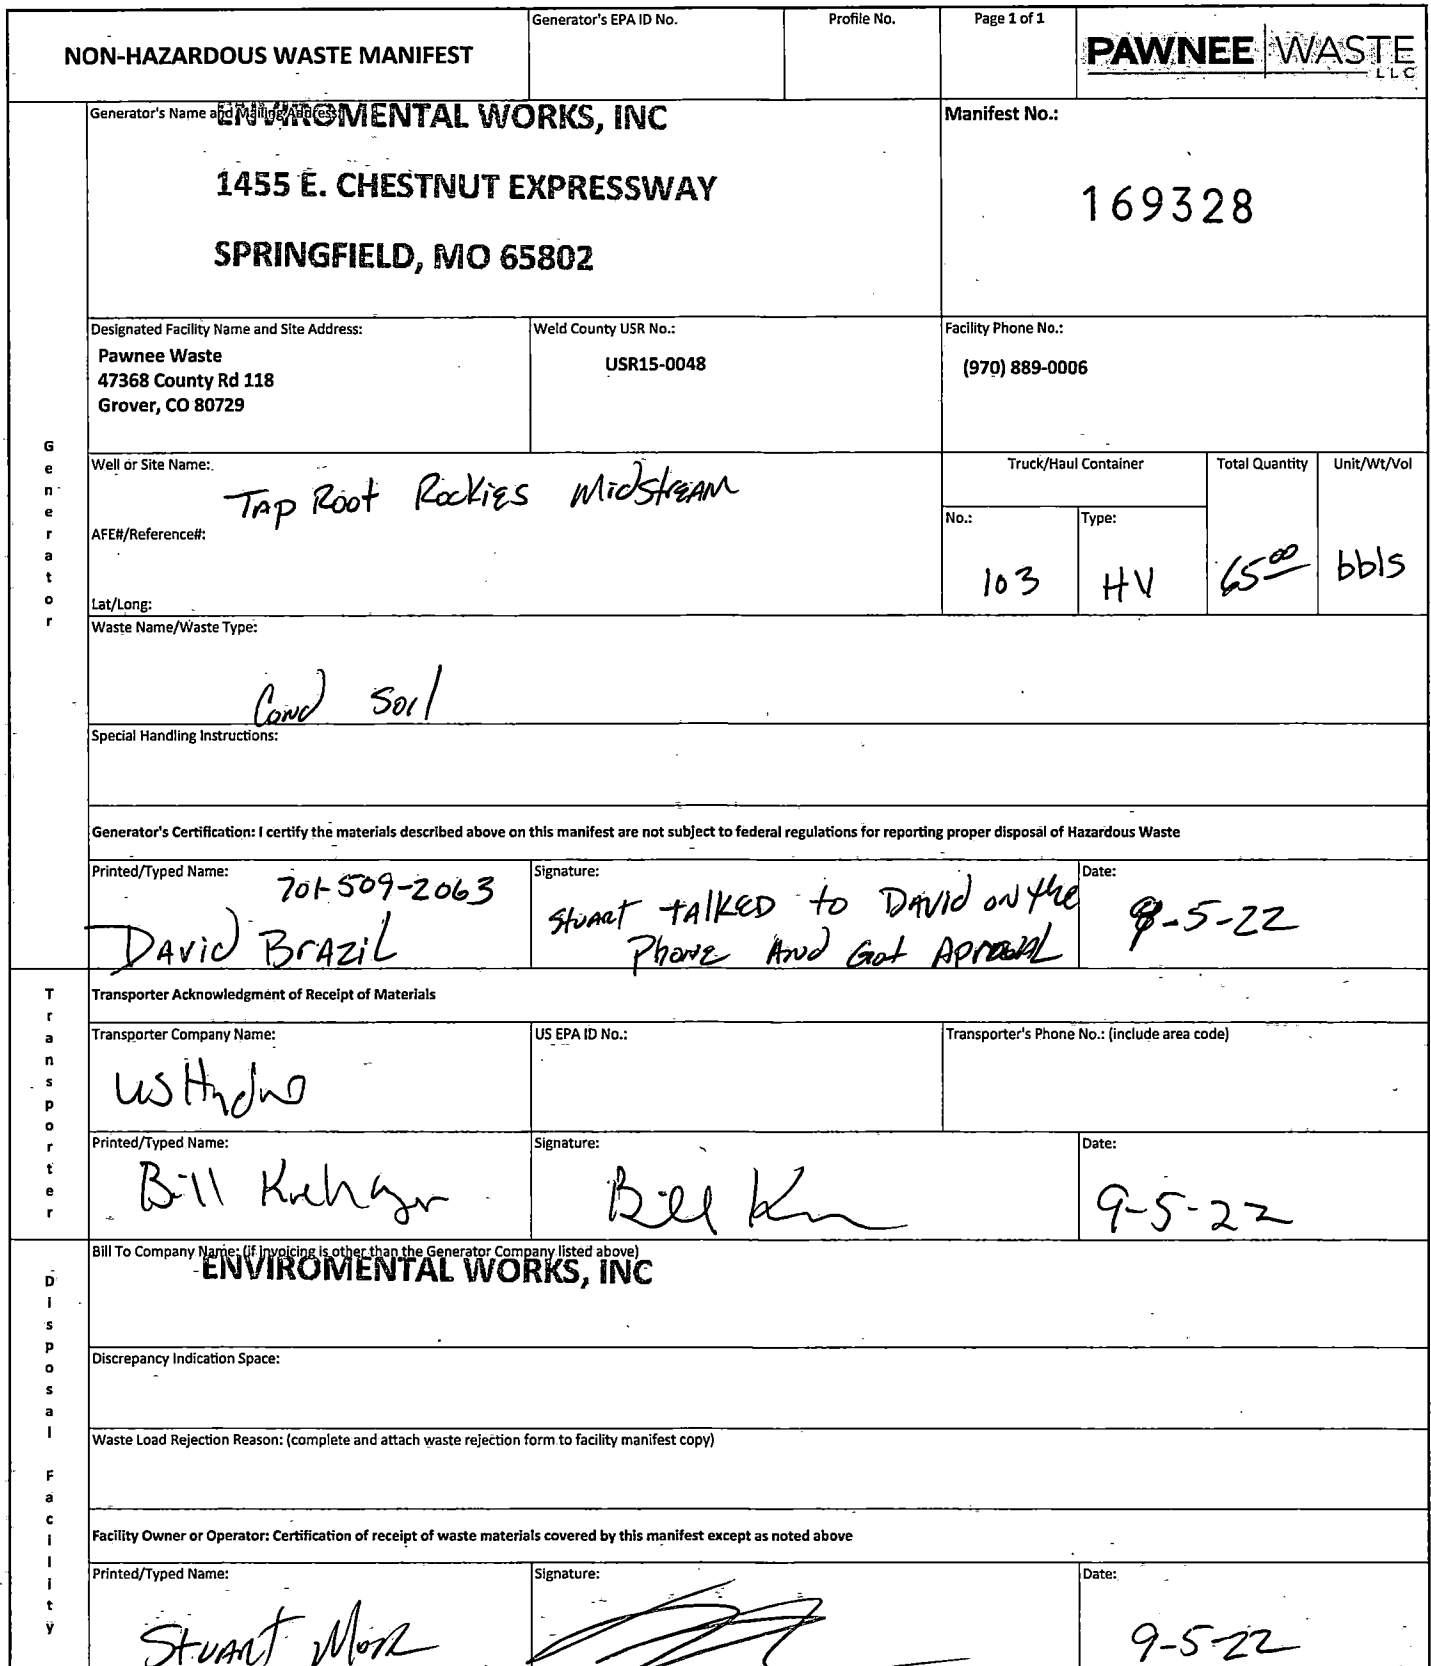 NON-HAZARDOUS WASTE MANIFEST
Generator's EPA ID No.
Profile No.
Page 1 of 1
PAWNEE WASTE
LLC
Generator's Name and Mailing Address:
ENVIROMENTAL WORKS, INC
1455 E. CHESTNUT EXPRESSWAY
SPRINGFIELD, MO 65802
Manifest No.:
169328
Designated Facility Name and Site Address:
Pawnee Waste
47368 County Rd 118
Grover, CO 80729
Weld County USR No.:
USR15-0048
Facility Phone No.:
(970) 889-0006
Generator
Well or Site Name:
Tap Root Rockies Midstream
AFE#/Reference#:
Lat/Long:
Truck/Haul Container
Total Quantity
Unit/Wt/Vol
No.:
Type:
103
HV
65 00
bbls
Waste Name/Waste Type:
Cond Soil
Special Handling Instructions:
Generator's Certification: I certify the materials described above on this manifest are not subject to federal regulations for reporting proper disposal of Hazardous Waste
Printed/Typed Name:
701-509-2063
David Brazil
Signature:
Stuart talked to David on the
Phone And Got
Date:
9-5-22
Transporter
Transporter Acknowledgment of Receipt of Materials
Transporter Company Name:
US Hydro
US EPA ID No.:
Transporter's Phone No.: (include area code)
Printed/Typed Name:
Bill
Signature:
Bill
Date:
9-5-22
Disposal Facility
Bill To Company Name: (if invoicing is other than the Generator Company listed above)
ENVIROMENTAL WORKS, INC
Discrepancy Indication Space:
Waste Load Rejection Reason: (complete and attach waste rejection form to facility manifest copy)
Facility Owner or Operator: Certification of receipt of waste materials covered by this manifest except as noted above
Printed/Typed Name:
Stuart
Signature:
Date:
9-5-22